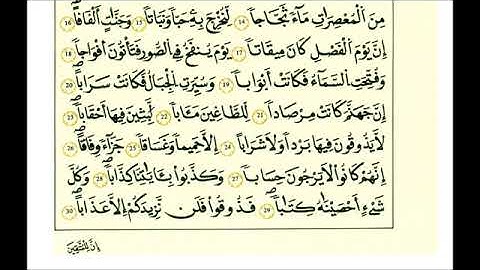 مِنَ ٱلْمُعْصِرَٰتِ مَآءً ثَجَّاجًا ١٤ لِّنُخْرِجَ بِهِۦ حَبًّا وَنَبَاتًا ١٥ وَجَنَّٰتٍ أَلْفَافًا ١٦
إِنَّ يَوْمَ ٱلْفَصْلِ كَانَ مِيقَٰتًا ١٧ يَوْمَ يُنفَخُ فِى ٱلصُّورِ فَتَأْتُونَ أَفْوَاجًا ١٨
وَفُتِحَتِ ٱلسَّمَآءُ فَكَانَتْ أَبْوَٰبًا ١٩ وَسُيِّرَتِ ٱلْجِبَالُ فَكَانَتْ سَرَابًا ٢٠
إِنَّ جَهَنَّمَ كَانَتْ مِرْصَادًا ٢١ لِّلطَّٰغِينَ مَـَٔابًا ٢٢ لَّٰبِثِينَ فِيهَآ أَحْقَابًا ٢٣
لَّا يَذُوقُونَ فِيهَا بَرْدًا وَلَا شَرَابًا ٢٤ إِلَّا حَمِيمًا وَغَسَّاقًا ٢٥ جَزَآءً وِفَاقًا ٢٦
إِنَّهُمْ كَانُوا۟ لَا يَرْجُونَ حِسَابًا ٢٧ وَكَذَّبُوا۟ بِـَٔايَٰتِنَا كِذَّابًا ٢٨ وَكُلَّ
شَىْءٍ أَحْصَيْنَٰهُ كِتَٰبًا ٢٩ فَذُوقُوا۟ فَلَن نَّزِيدَكُمْ إِلَّا عَذَابًا ٣٠
إِنَّ لِلْمُتَّقِينَ